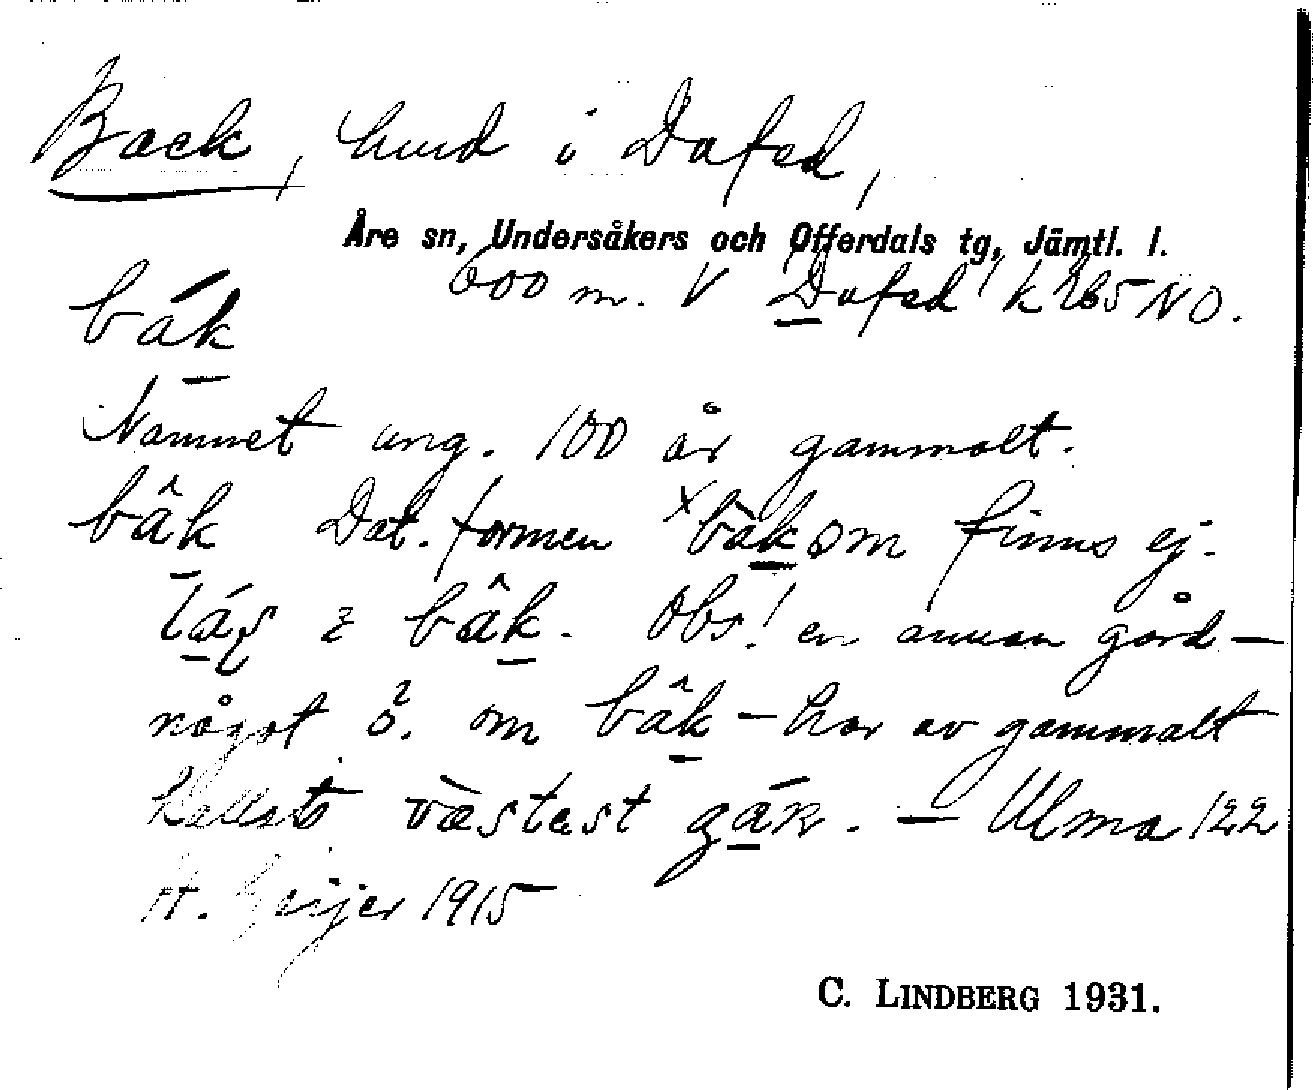 Back, hmd i Dufed,
Åre sn, Undersåkers och Offerdals tg, Jämtl. l.
600 m. V Dufed! k 265 NO.
bák
Namnet ung. 100 år gammalt.
bâk Dat. formen ˣbàkom finns ej.
bâk. Obs! en annan gård —
något ö. om bâk – har av gammalt
kallats væstest gák. — Ulma 122
H. Geijer 1915
C. LINDBERG 1931.